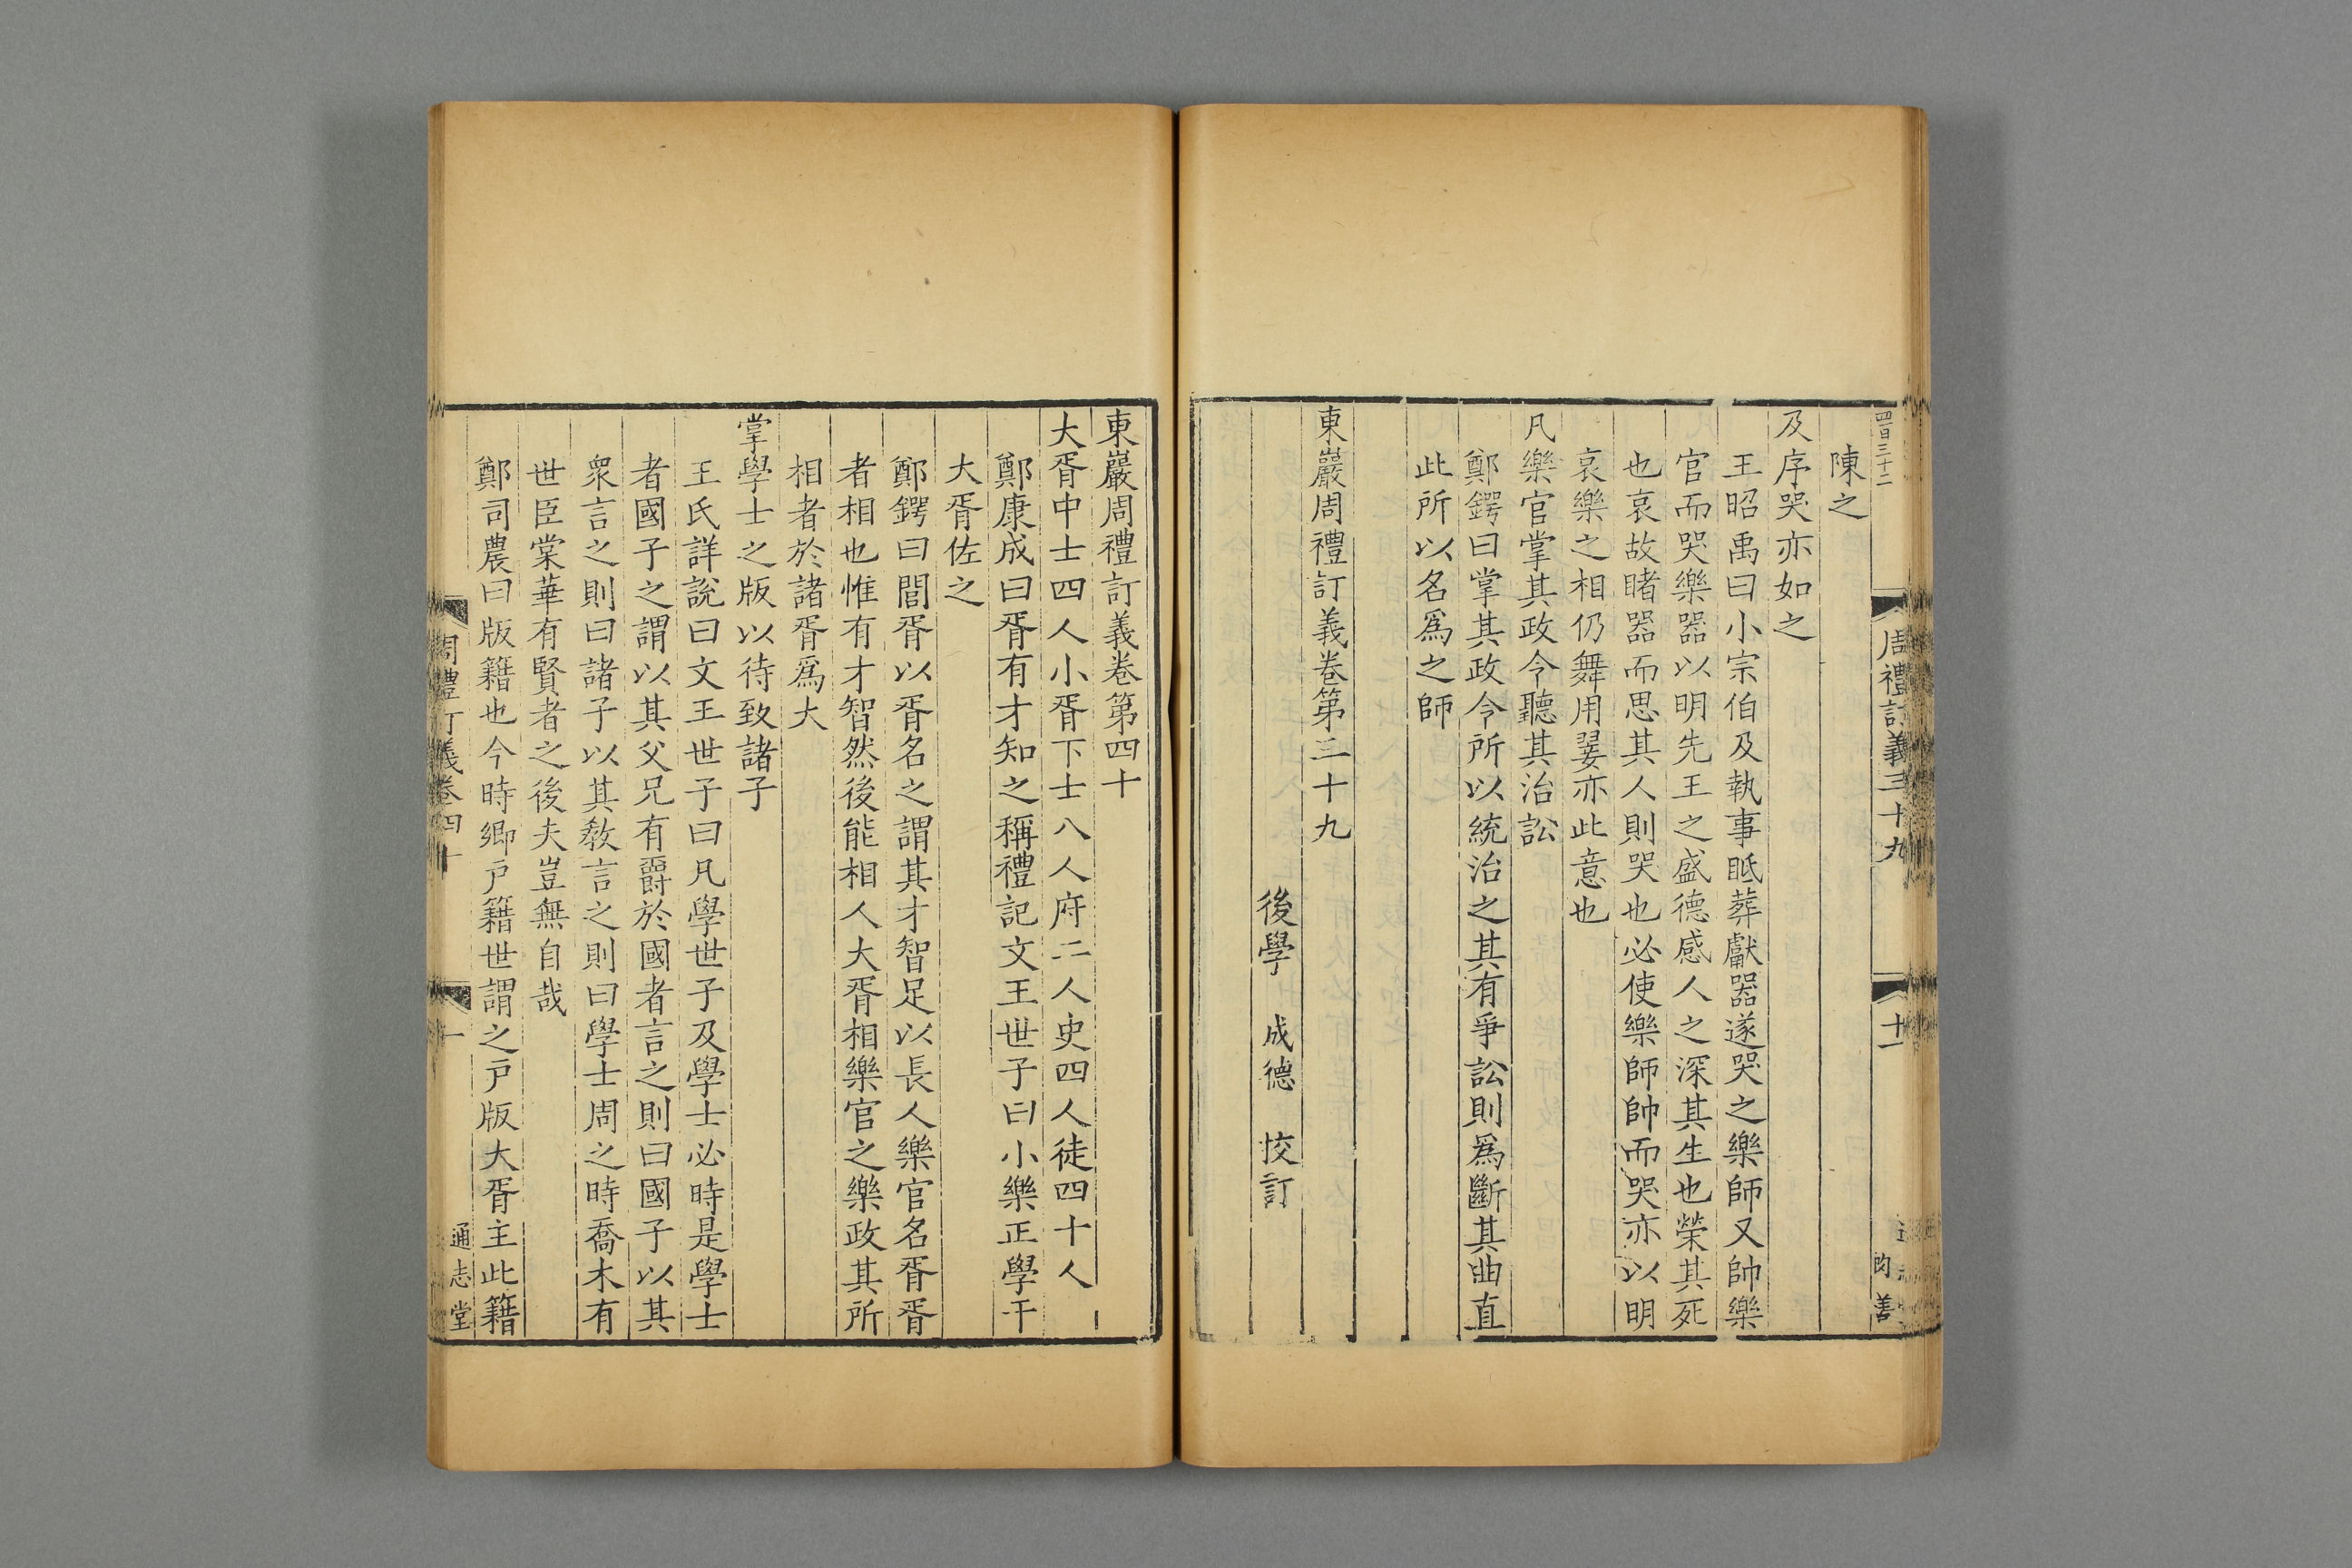 四百三十二
周禮訂義三十九
十一
陳之
及序哭亦如之
王昭禹曰小宗伯及執事眡葬獻器遂哭之樂師又帥樂
官而哭樂器以明先王之盛德感人之深其生也榮其死
也哀故睹器而思其人則哭也必使樂師帥而哭亦以明
哀樂之相仍舞用翣亦此意也
凡樂官掌其政令聽其治訟
鄭鍔曰掌其政令所以統治之其有爭訟則爲斷其曲直
此所以名爲之師
東巖周禮訂義卷第三十九
後學 成德 挍訂
東巖周禮訂義卷第四十
大胥中士四人小胥下士八人府二人史四人徒四十人
鄭康成曰胥有才知之稱禮記文王世子曰小樂正學干
大胥佐之
鄭鍔曰閭胥以胥名之謂其才智足以長人樂官名胥胥
者相也惟有才智然後能相人大胥相樂官之樂政其所
相者於諸胥爲大
掌學士之版以待致諸子
王氏詳說曰文王世子曰凡學世子及學士必時是學士
者國子之謂以其父兄有爵於國者言之則曰國子以其
衆言之則曰諸子以其敎言之則曰學士周之時喬木有
世臣棠華有賢者之後夫豈無自哉
鄭司農曰版籍也今時鄉戸籍世謂之戸版大胥主此籍
周禮訂義卷四十
一
通志堂